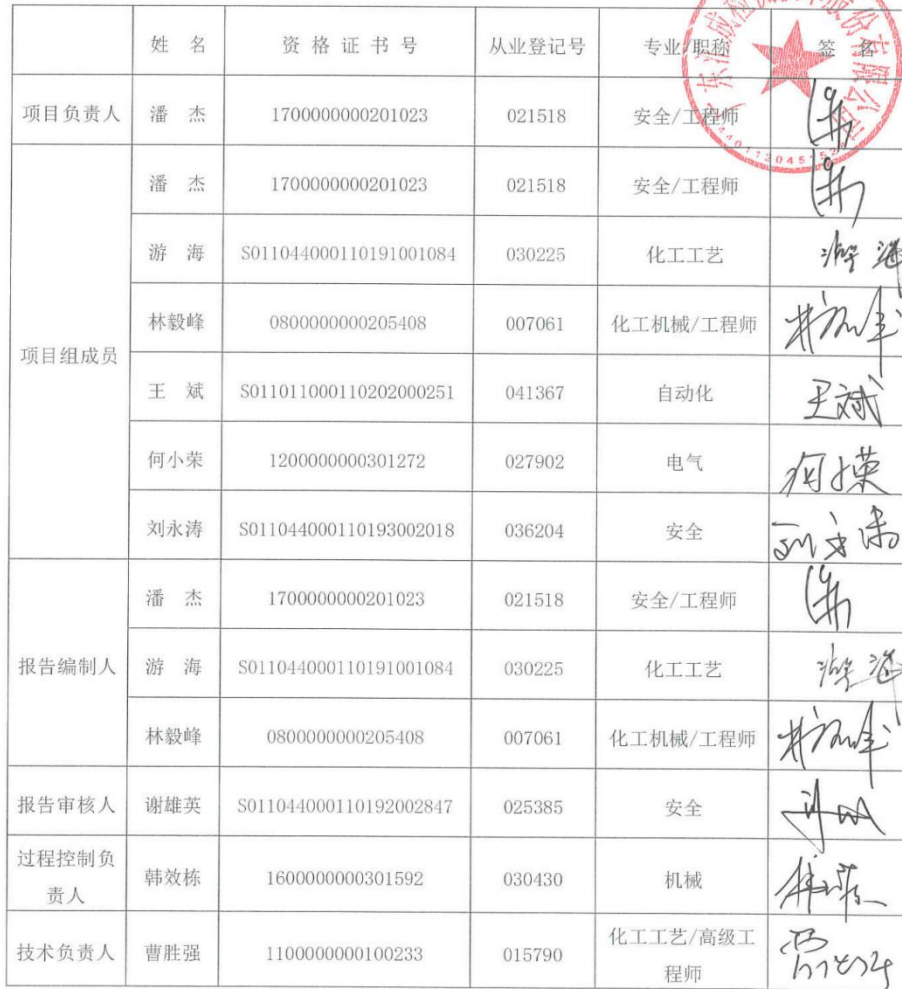 姓 名 资格证书号 从业登记号 专业/职称 签 名
项目负责人 潘 杰 1700000000201023 021518 安全/工程师
项目组成员
潘 杰 1700000000201023 021518 安全/工程师
游 海 S011044000110191001084 030225 化工工艺 游海
林毅峰 0800000000205408 007061 化工机械/工程师
王 斌 S011011000110202000251 041367 自动化 王斌
何小荣 1200000000301272 027902 电气 何小荣
刘永涛 S011044000110193002018 036204 安全 刘永涛
报告编制人
潘 杰 1700000000201023 021518 安全/工程师
游 海 S011044000110191001084 030225 化工工艺 游海
林毅峰 0800000000205408 007061 化工机械/工程师
报告审核人 谢雄英 S011044000110192002847 025385 安全
过程控制负
责人
韩效栋 1600000000301592 030430 机械
技术负责人 曹胜强 1100000000100233 015790 化工工艺/高级工
程师